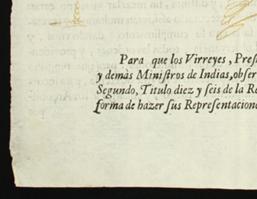 Para que los Virreyes, Pres
y demàs Ministros de Indias, obser
Segundo, Titulo diez y seis de la Re
forma de hazer sus Representacione